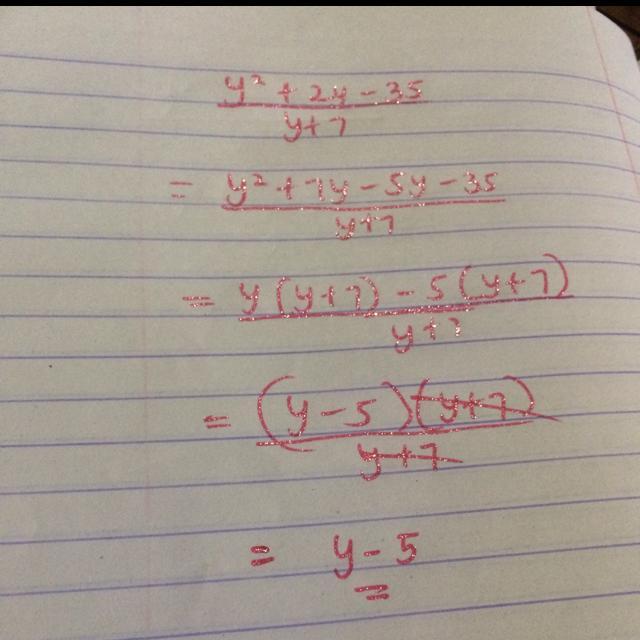 y² + 2y - 35
y+7
= y² + 7y - 5y - 35
y+7
= y (y+7) - 5 (y+7)
y+7
= (y - 5) (y+7)
y+7
= y - 5